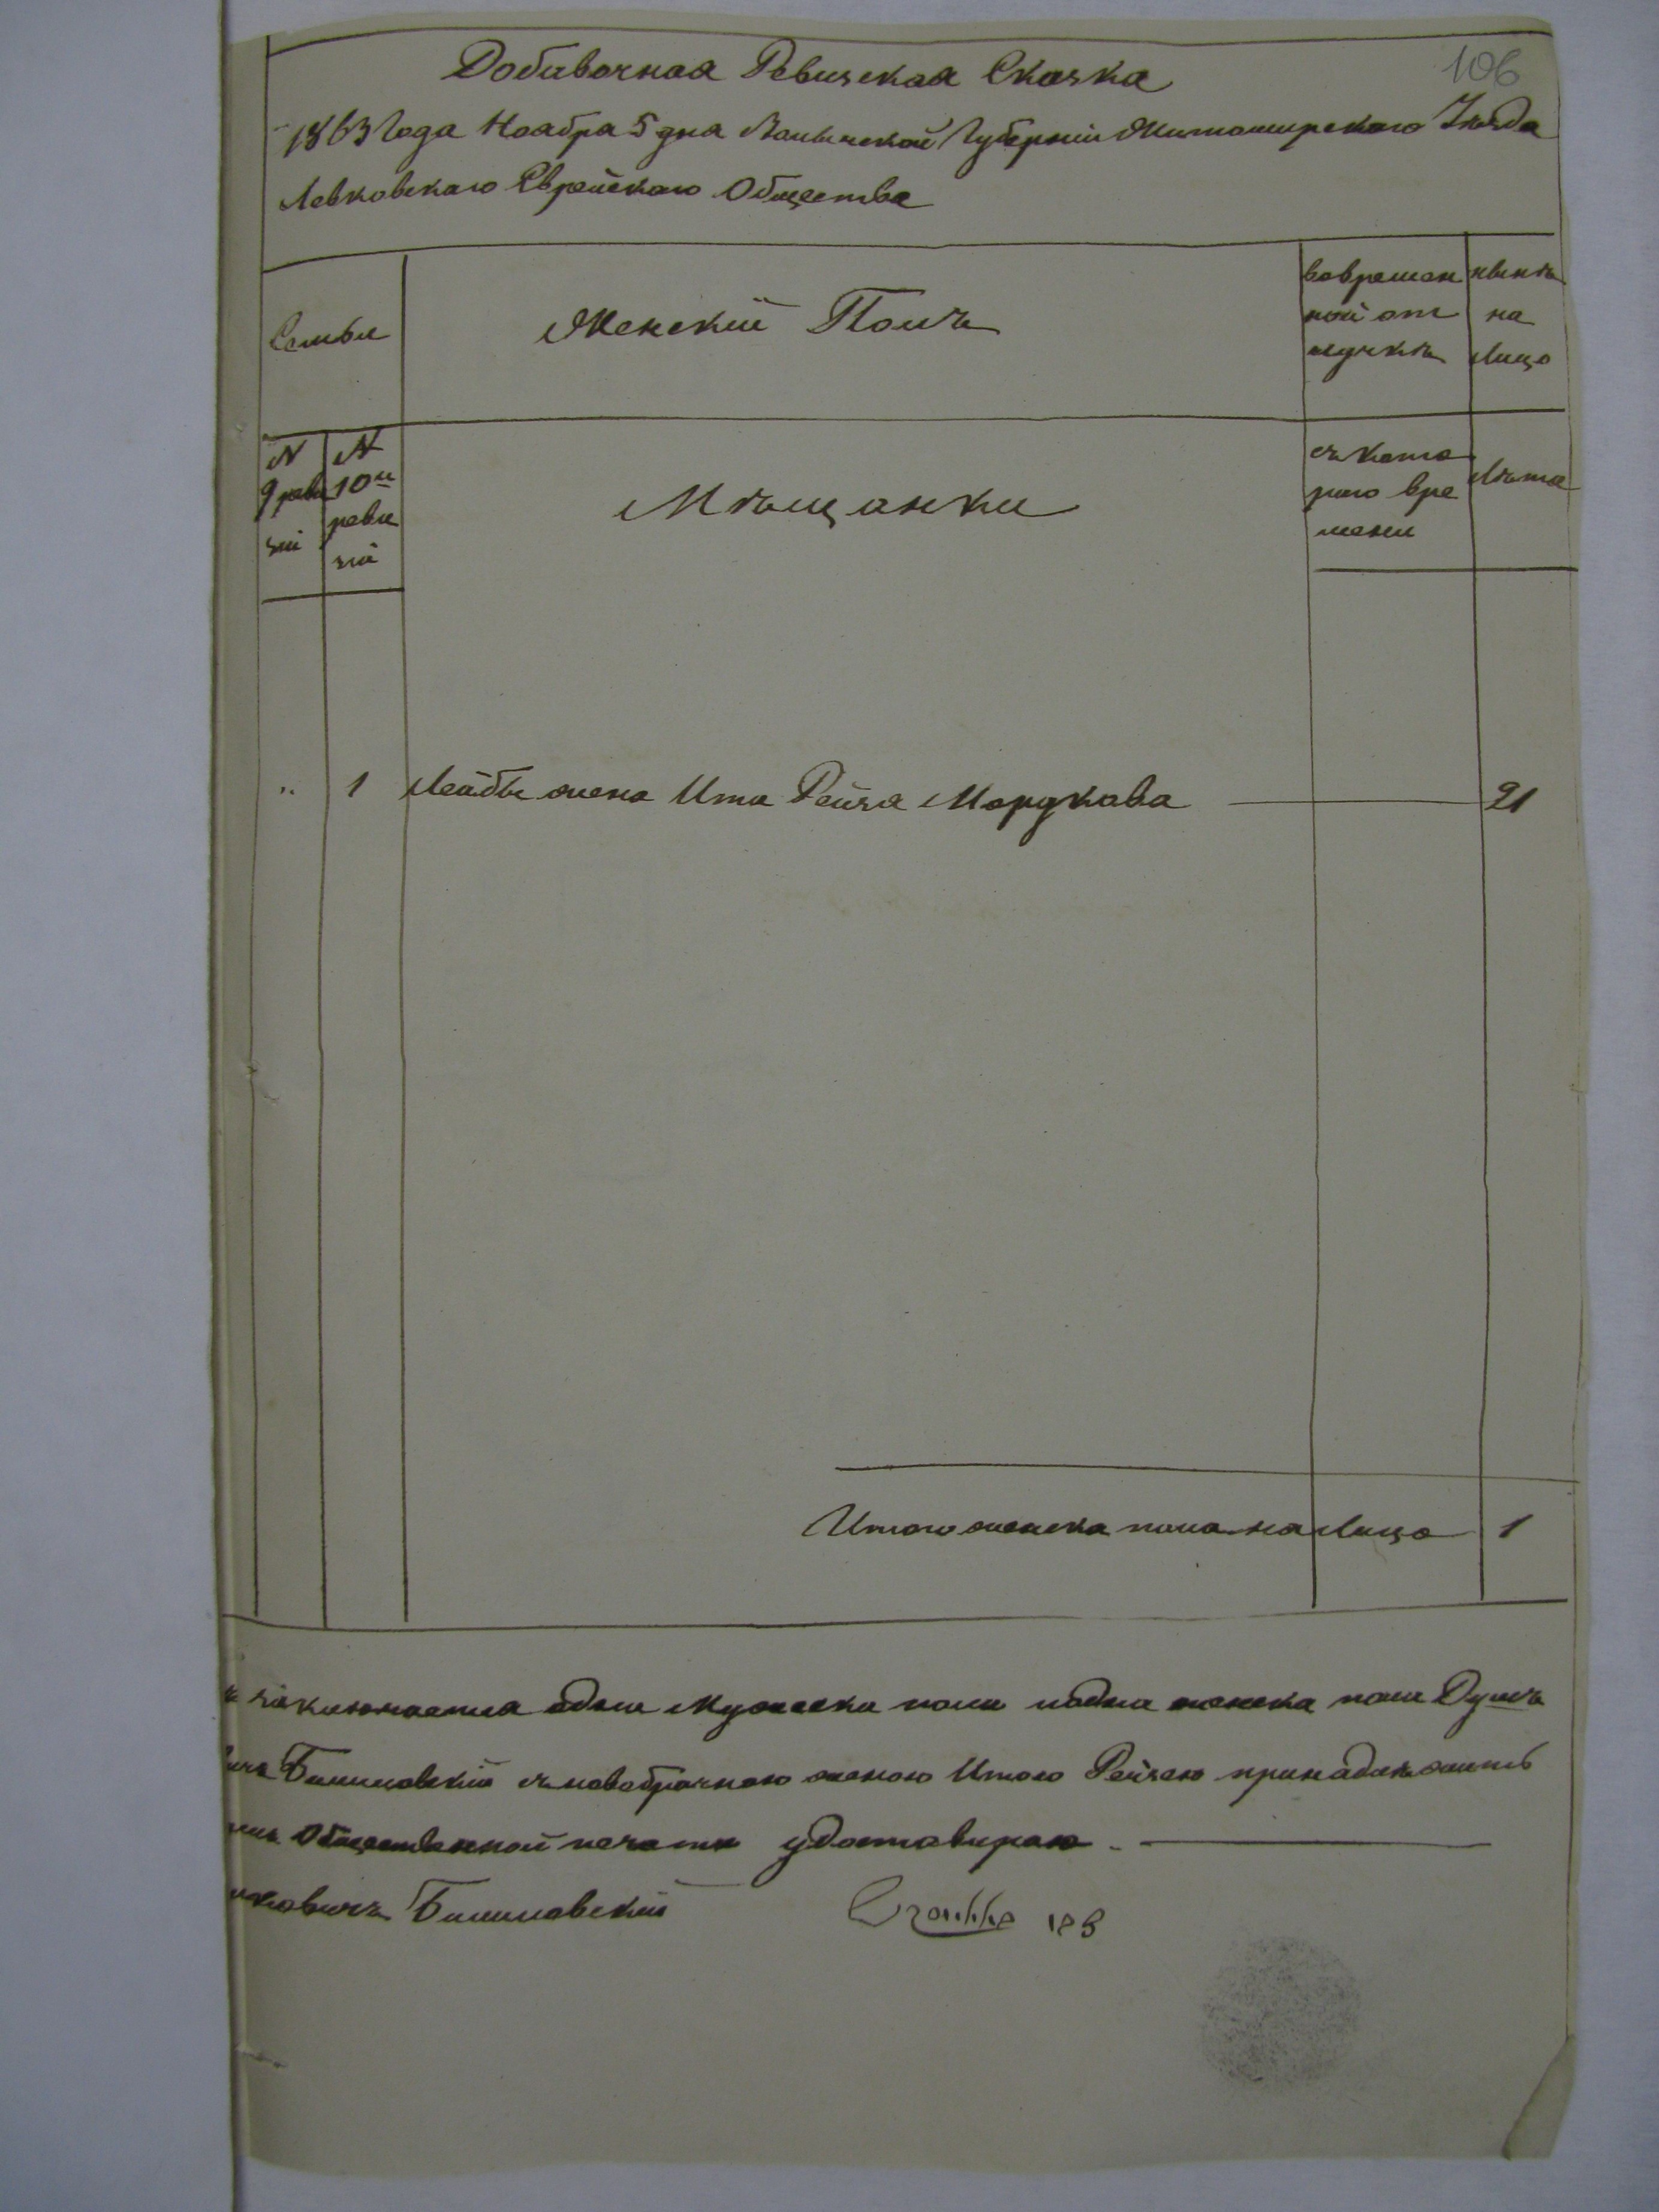 106
Добавочная Ревизская Сказка
1863 Года Ноября 5 дня Волынской Губерніи Житомирскаго Уѣзда
Левковскаго Еврейскаго Общества
Семьи
Женскій Полъ
вовремен
ной от
лучкѣ
нынѣ
на
Лицо
N
9 реви
зіи
N
10й
реви
зіи
Мѣщанки
съ кото
раго вре
мени
Лѣта
" 1 Лейбы жена Ита Рейзя Мордкова 21
Итого женска пола на Лицо 1
заключается одна Мужеска пола иодна женска пола Душъ
Билиловскій съ новобрачною женою Итою Рейзею принадлежитъ
Общественной печати удостовѣряю
ковичъ Билиловскій